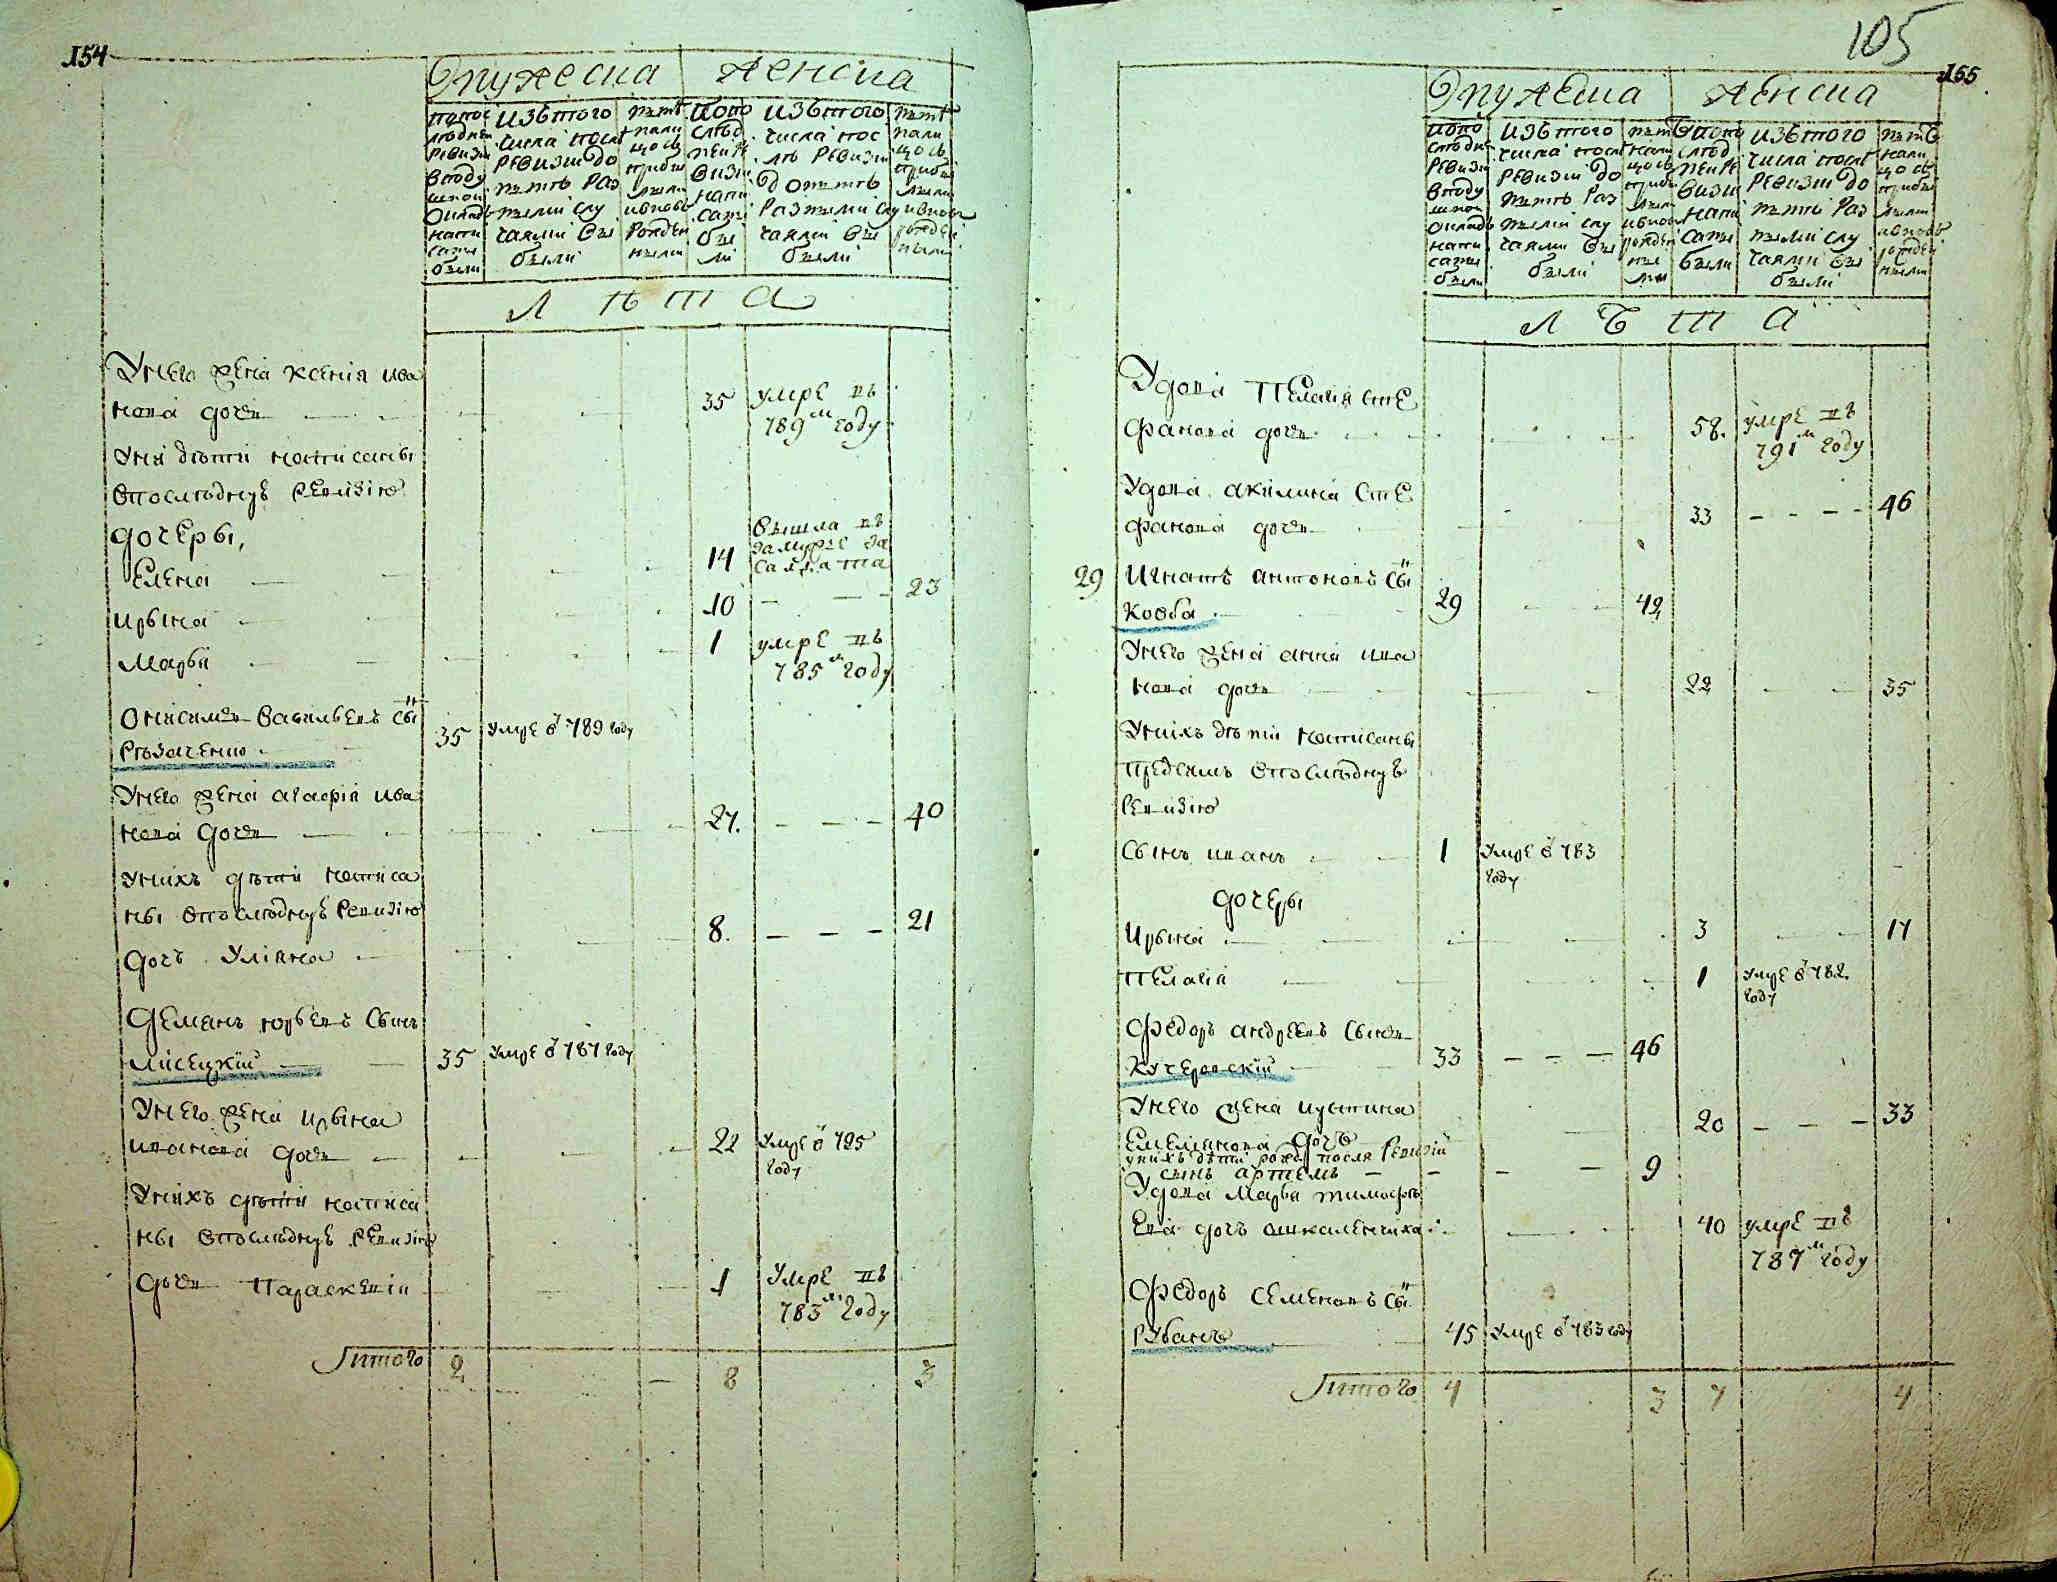 154
Мужеска
Женска
По пос
лѣдней
ревизіи
в поду
шной
окладъ
напи
саны
были
Изъ того
числа посл
ревизіи до
нынѣ раз
ными слу
чаями вы
были
Нынѣ
нали
цо съ
прибы
лыми
и вновь
рожден
ными
По по
слѣд
ней ре
визіи
напи
саны
бы
ли
Изъ того
числа пос
лѣ ревизіи
до нынѣ
разными слу
чаями вы
были
Нынѣ
нали
цо съ
прибы
лыми
и вновь
рожден
ными
Л ѣ т а
У него жена Ксенія Ива
нова дочь 35 умре въ
789м году
У нія дѣти написаны
в последную ревизію
дочеры,
Елена 14 вышла въ
замужże за
салдата
Ирына 10 23
Марья 1 умре въ
785м году
Онисимъ Васильевъ сынъ
Рѣзаченко 35 умре в 789 году
У него жена Агафія Ива
нова дочь 27. 40
У нихъ дѣти написа
ны в последнуѣ ревизію
дочь Уліяна 8. 21
Демянъ Юрьевъ сынъ
Лисецкій 35 умре в 787 году
У него жена Ирына
Иванова дочь 22 умре в 795
году
У нихъ дѣти написа
ны в последнуѣ ревизію
дочь Параскевія 1 умре въ
783м году
Итого 2 8 3
105
155
Мужеска
Женска
По по
слѣдней
ревизіи
в поду
шной
окладъ
напи
саны
были
Изъ того
числа после
ревизіи до
нынѣ раз
ными слу
чаями вы
были
Нынѣ
нали
цо съ
прибы
лыми
и вновь
рожден
ны
ми
По по
слѣд
ней ре
визіи
напи
саны
были
Изъ того
числа после
ревизіи до
нынѣ раз
ными слу
чаями вы
были
Нынѣ
нали
цо съ
прибы
лыми
и вновь
рожден
ными
Л ѣ т а
Удова Пелагія Сте
фанова дочь 58. умре въ
791м году
Удова Акилина Сте
фанова дочь 33 46
29 Игнатъ Антоновъ сынъ
Ковба 29 42
У него жена Анна Ива
нова дочь 22 35
У нихъ дѣти написаны
предсимъ в последнуѣ
ревизію
Сынъ Иванъ 1 умре в 783
году
дочеры
Ирына 3 17
Пелагія 1 умре в 782
году
Федоръ Андреевъ сынъ
Кучеровскій 33 46
У него жена Иустина
Емелянова дочь 20 33
у нихъ дѣти рожд после ревизій
сынъ Артемъ 9
Удова Марья Тимофѣ
ева дочь Ошкаленчиха 40 умре въ
787м году
Федоръ Семеновъ сынъ
Рубанъ 45 умре в 783 году
Итого 4 3 7 4